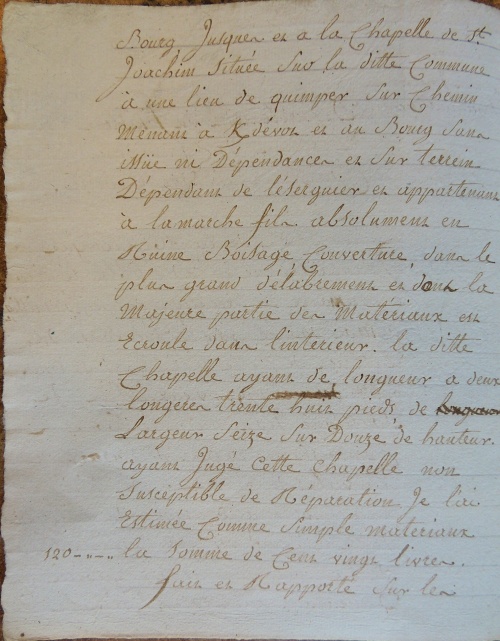 Bourg Jusques et a la Chapelle de St
Joachim située sur la ditte Commune
à une lieu de quimper sur Chemin
Menant à Kdévot et au Bourg sans
issüe ni Dépendances et sur terrein
Dépendant de léserguier et appartenant
à lamarche fils absolument en
Rüine Boisage Couverture dans le
plus grand délabrement et dont la
Majeure partie des Materiaux est
Ecroule dans linterieur. la ditte
Chapelle ayant de longueur a deux
longeres trente huit pieds, de
Largeur Seize sur Douze de hauteur.
ayant Jugé Cette Chapelle non
susceptible de Réparation Je l'ai
Estimée Comme simple materiaux
120-"-"- la somme de Cent vingt livres.
fait et Rapporté sur les